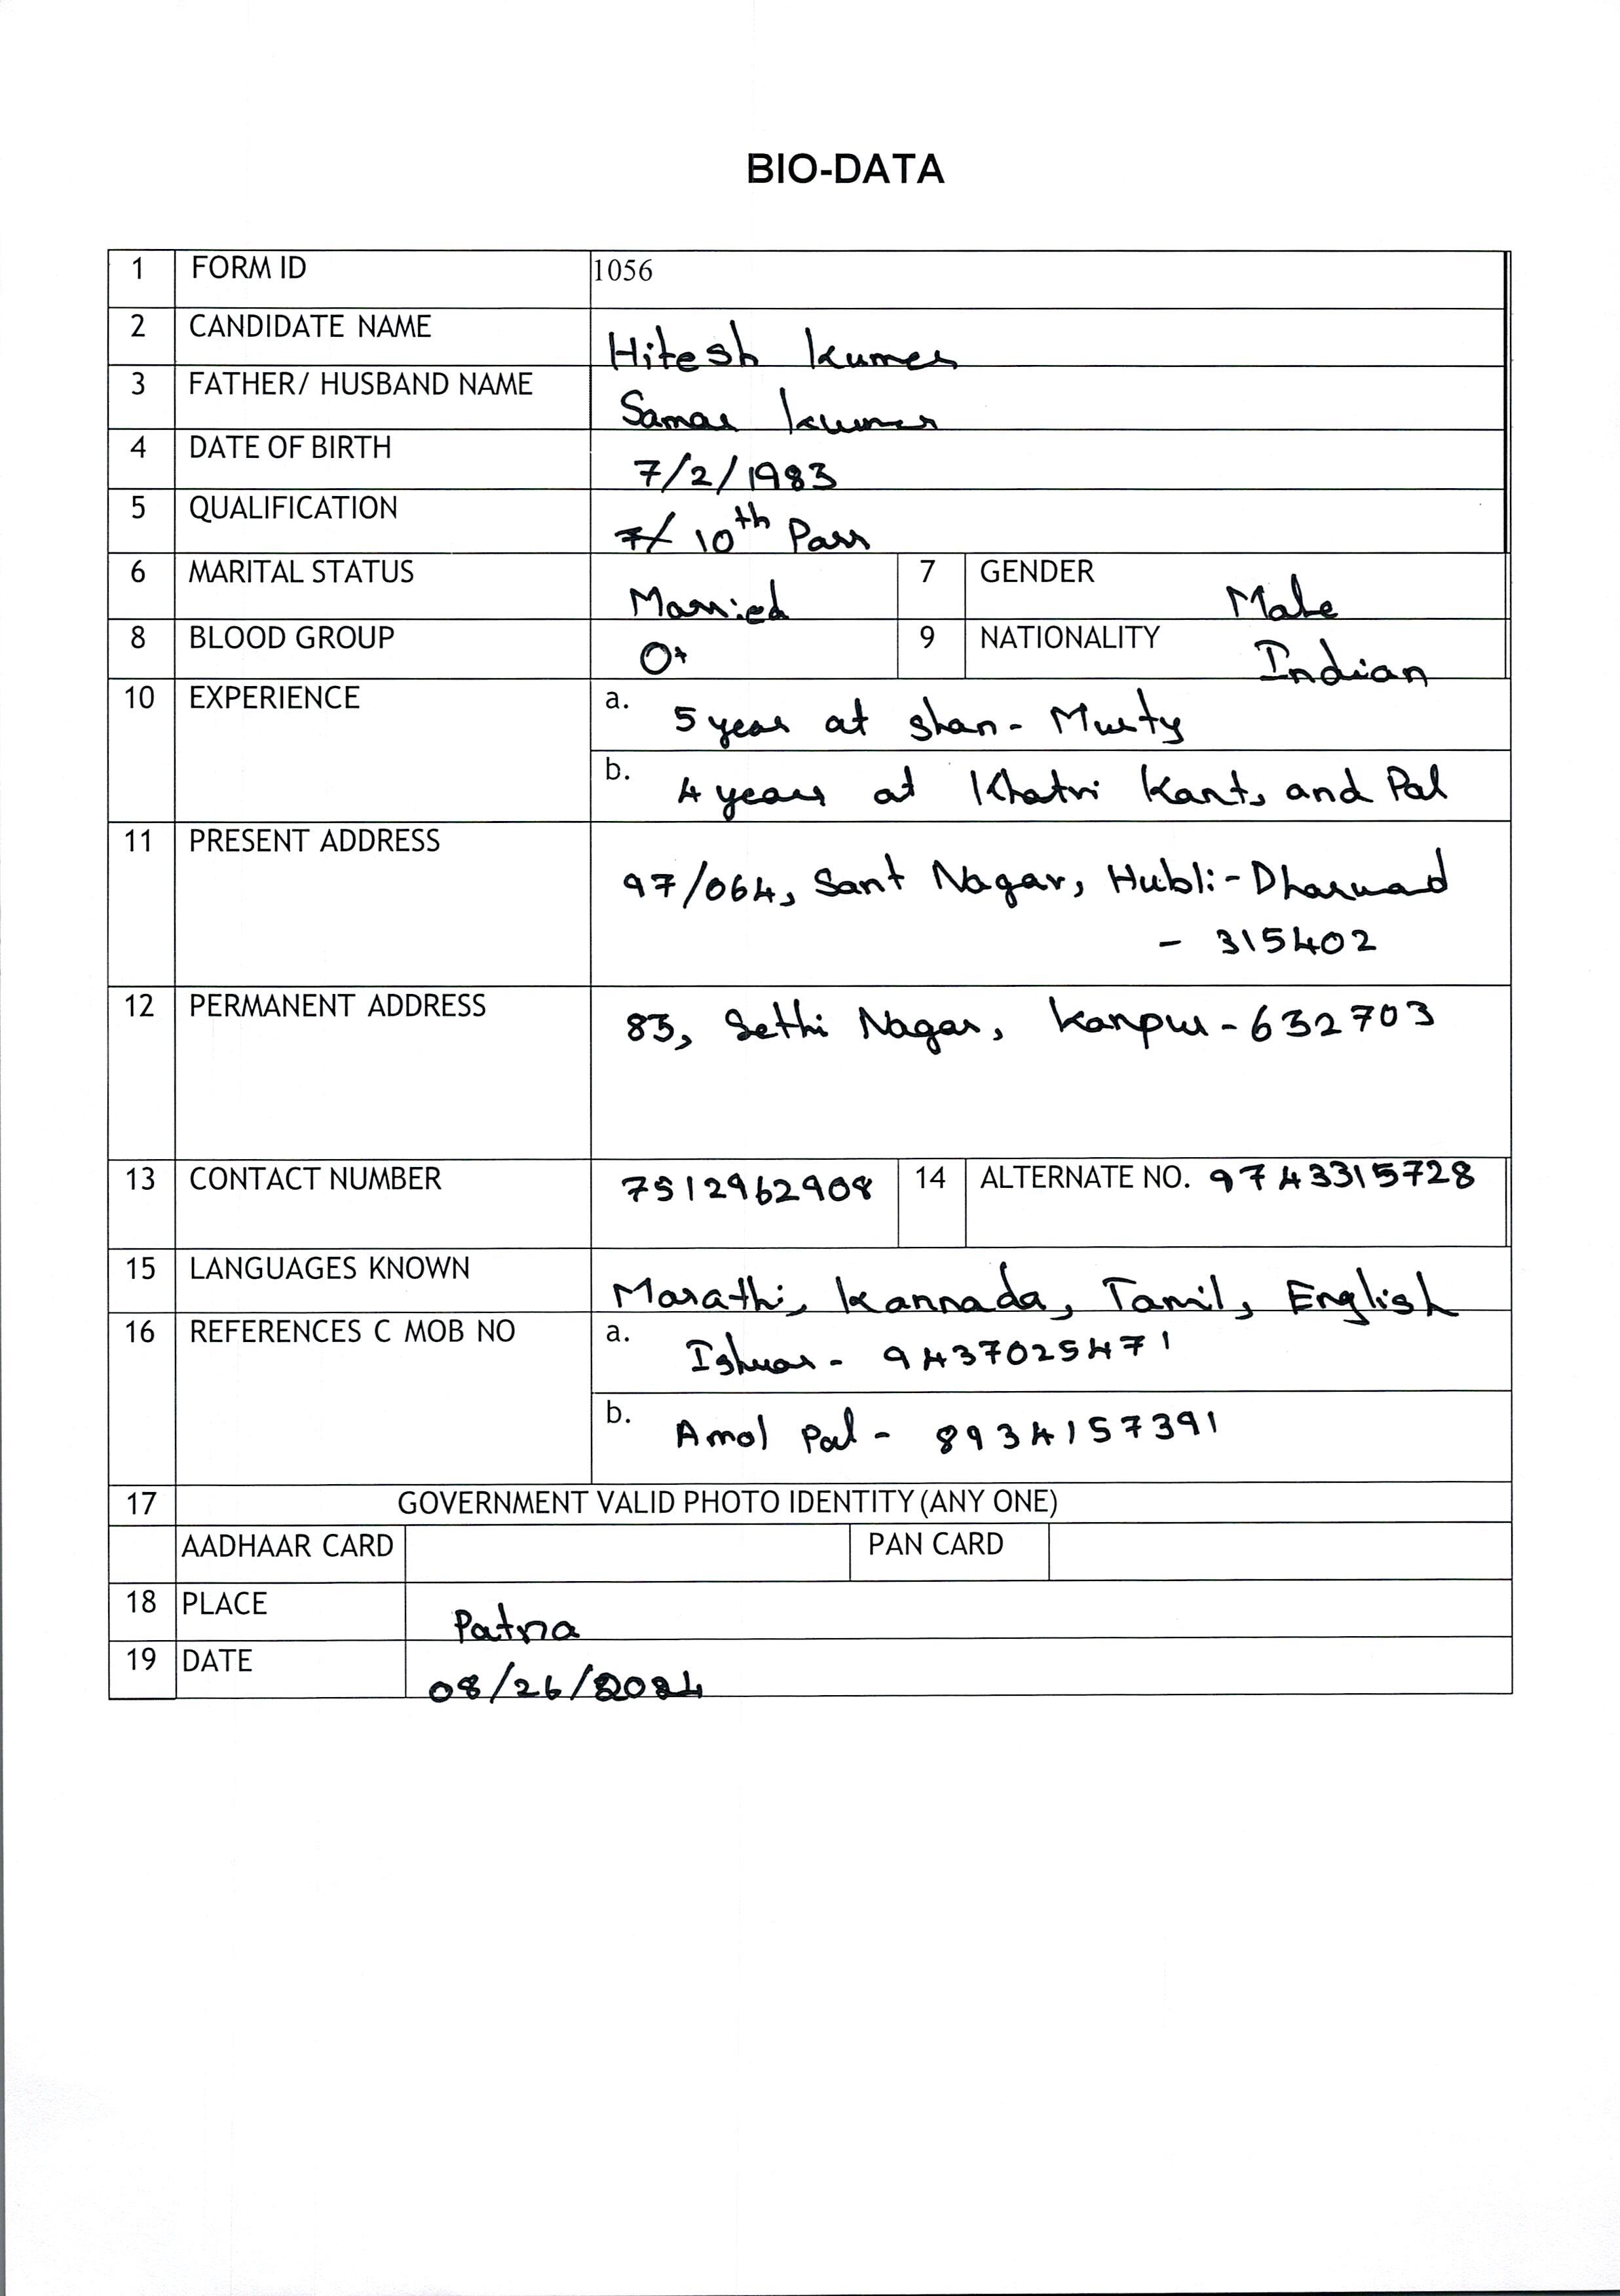 BIO-DATA
1 FORM ID 1056
2 CANDIDATE NAME Hitesh Kumar
3 FATHER/ HUSBAND NAME Samar Kumar
4 DATE OF BIRTH 7/2/1983
5 QUALIFICATION 10th Pass
6 MARITAL STATUS Married 7 GENDER Male
8 BLOOD GROUP O+ 9 NATIONALITY Indian
10 EXPERIENCE a. 5 year at Shan- Murty
b. 4 years at Khatri Kant, and Pal
11 PRESENT ADDRESS 97/064, Sant Nagar, Hubli-Dharwad
- 315402
12 PERMANENT ADDRESS 83, Sethi Nagar, Kanpur-632703
13 CONTACT NUMBER 7512962908 14 ALTERNATE NO. 9743315728
15 LANGUAGES KNOWN Marathi, Kannada, Tamil, English
16 REFERENCES C MOB NO a. Ishwar - 9437025471
b. Amol Pal - 8934157391
17 GOVERNMENT VALID PHOTO IDENTITY (ANY ONE)
AADHAAR CARD PAN CARD
18 PLACE Patna
19 DATE 08/26/2024